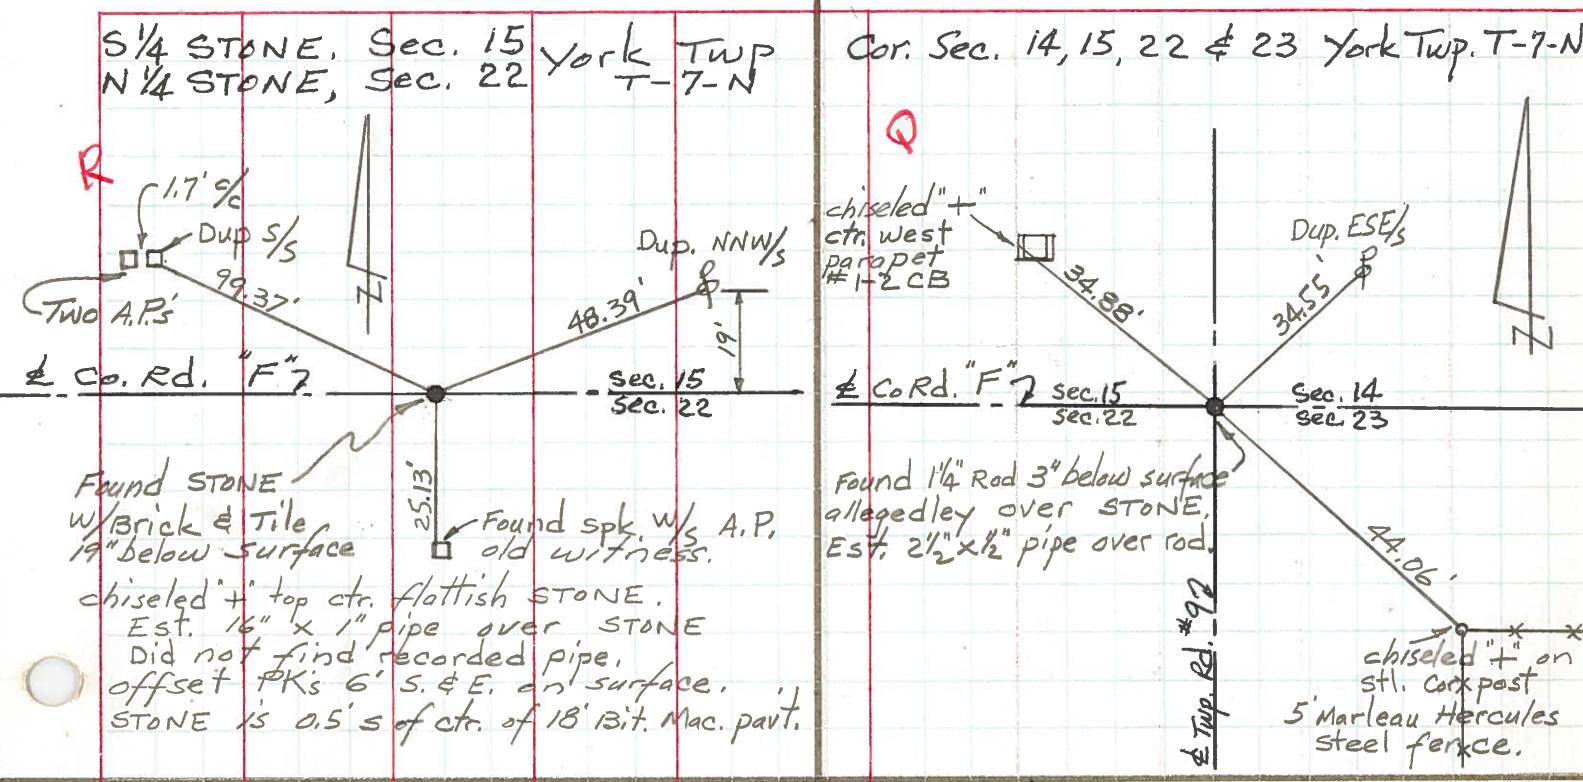 S 1/4 STONE, Sec. 15 York Twp
N 1/4 STONE, Sec. 22 T-7-N
R
1.7' c/c
Dup S/S
99.37'
Two A.P.'s
N
Dup. NNW/S
48.39'
19'
℄ Co. Rd. "F"
Sec. 15
Sec. 22
Found STONE
W/Brick & Tile
19" below surface
25.13'
Found spk. W/S A.P.
old witness.
chiseled "+" top ctr. flattish STONE.
Est. 16" x 1" pipe over STONE
Did not find recorded pipe.
offset PK's 6' S. & E. on surface.
STONE is 0.5' s of ctr. of 18' Bit. Mac. pav't.
Cor. Sec. 14, 15, 22 & 23 York Twp. T-7-N
Q
chiseled "+"
ctr. west
parapet
#1-2 CB
34.88'
Dup. ESE/S
34.55'
N
℄ Co Rd. "F"
Sec. 15
Sec. 22
Sec. 14
Sec. 23
Found 1 1/4" Rod 3" below surface
allegedley over STONE.
Est. 2 1/2" x 1/2" pipe over rod.
44.06'
℄ Twp. Rd. #92
chiseled "+" on
stl. Cor post
5' Marleau Hercules
steel fence.